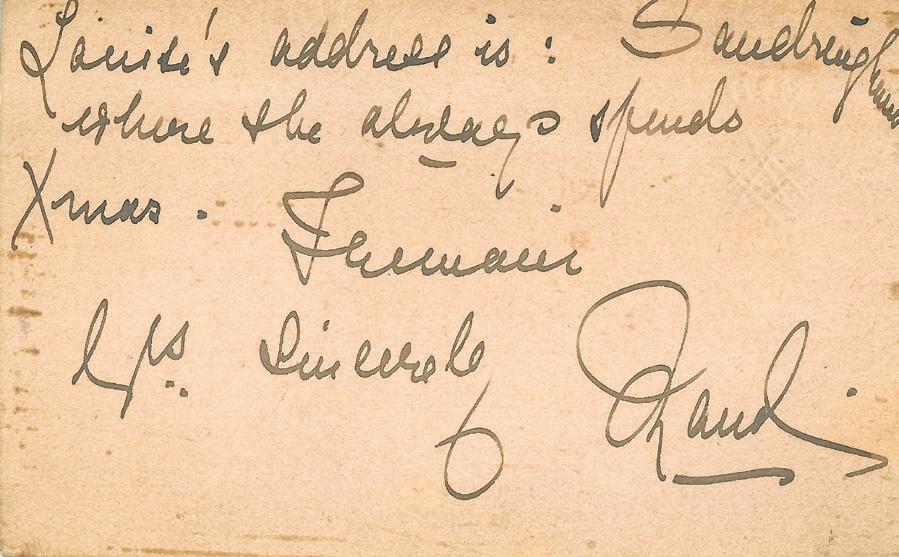 Louise's address is: Sandringham
where she always spends
Xmas. I remain
Yrs. Sincerely
Maud